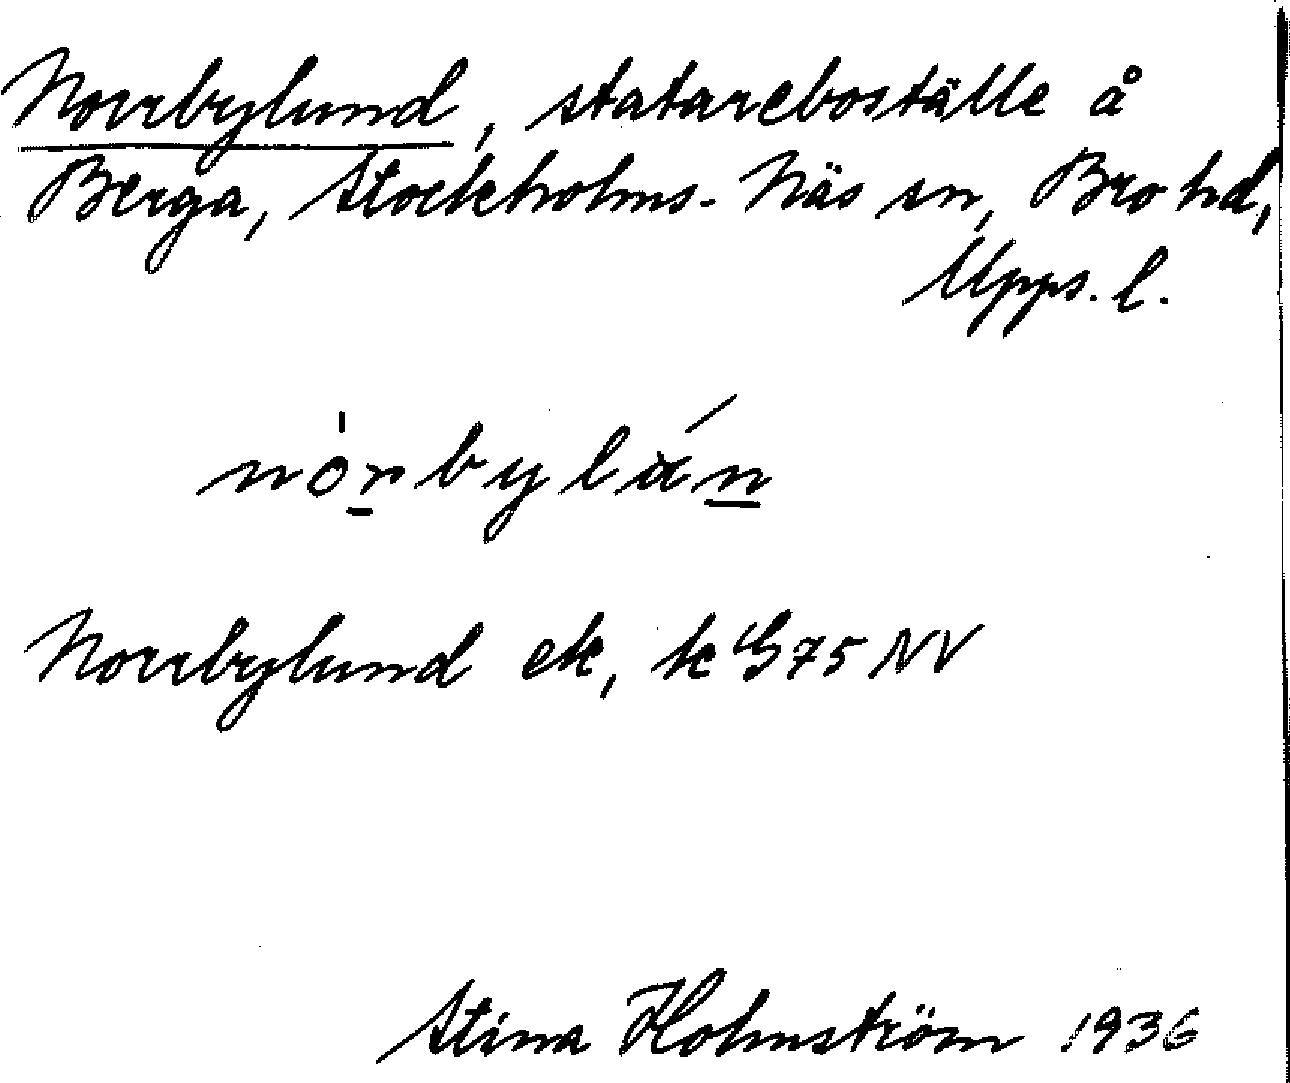 Norrbylund, statareboställe å
Berga, Stockholms-Näs sn, Bro hd,
Upps. l.
Norrbylund ek, k G75 NV
Stina Holmström 1936